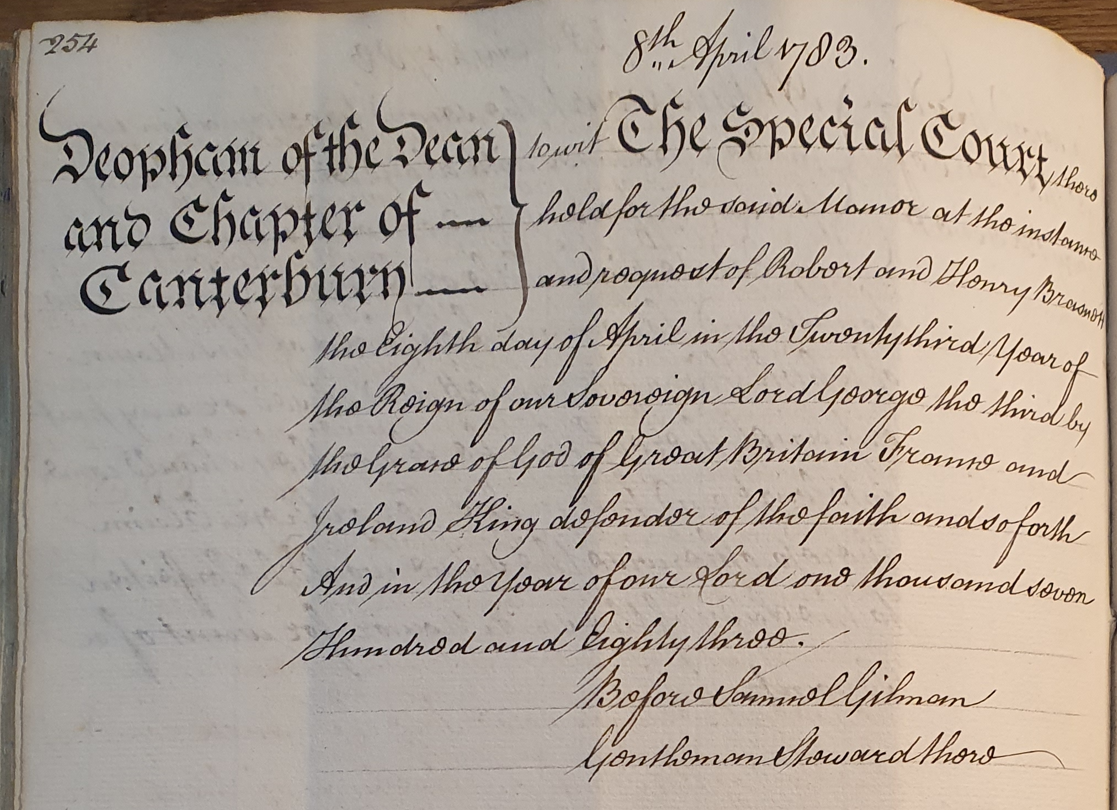 254
8th April 1783.
Deopham of the Dean
and Chapter of
Canterbury
to wit The Special Court there
held for the said Manor at the instance
and request of Robert and Henry Brasnett
the Eighth day of April in the Twentythird Year of
the Reign of our Sovereign Lord George the third by
the Grace of God of Great Britain France and
Ireland King defender of the faith and so forth
And in the Year of our Lord one thousand seven
Hundred and Eighty three.
Before Samuel Gilman
Gentleman Steward there